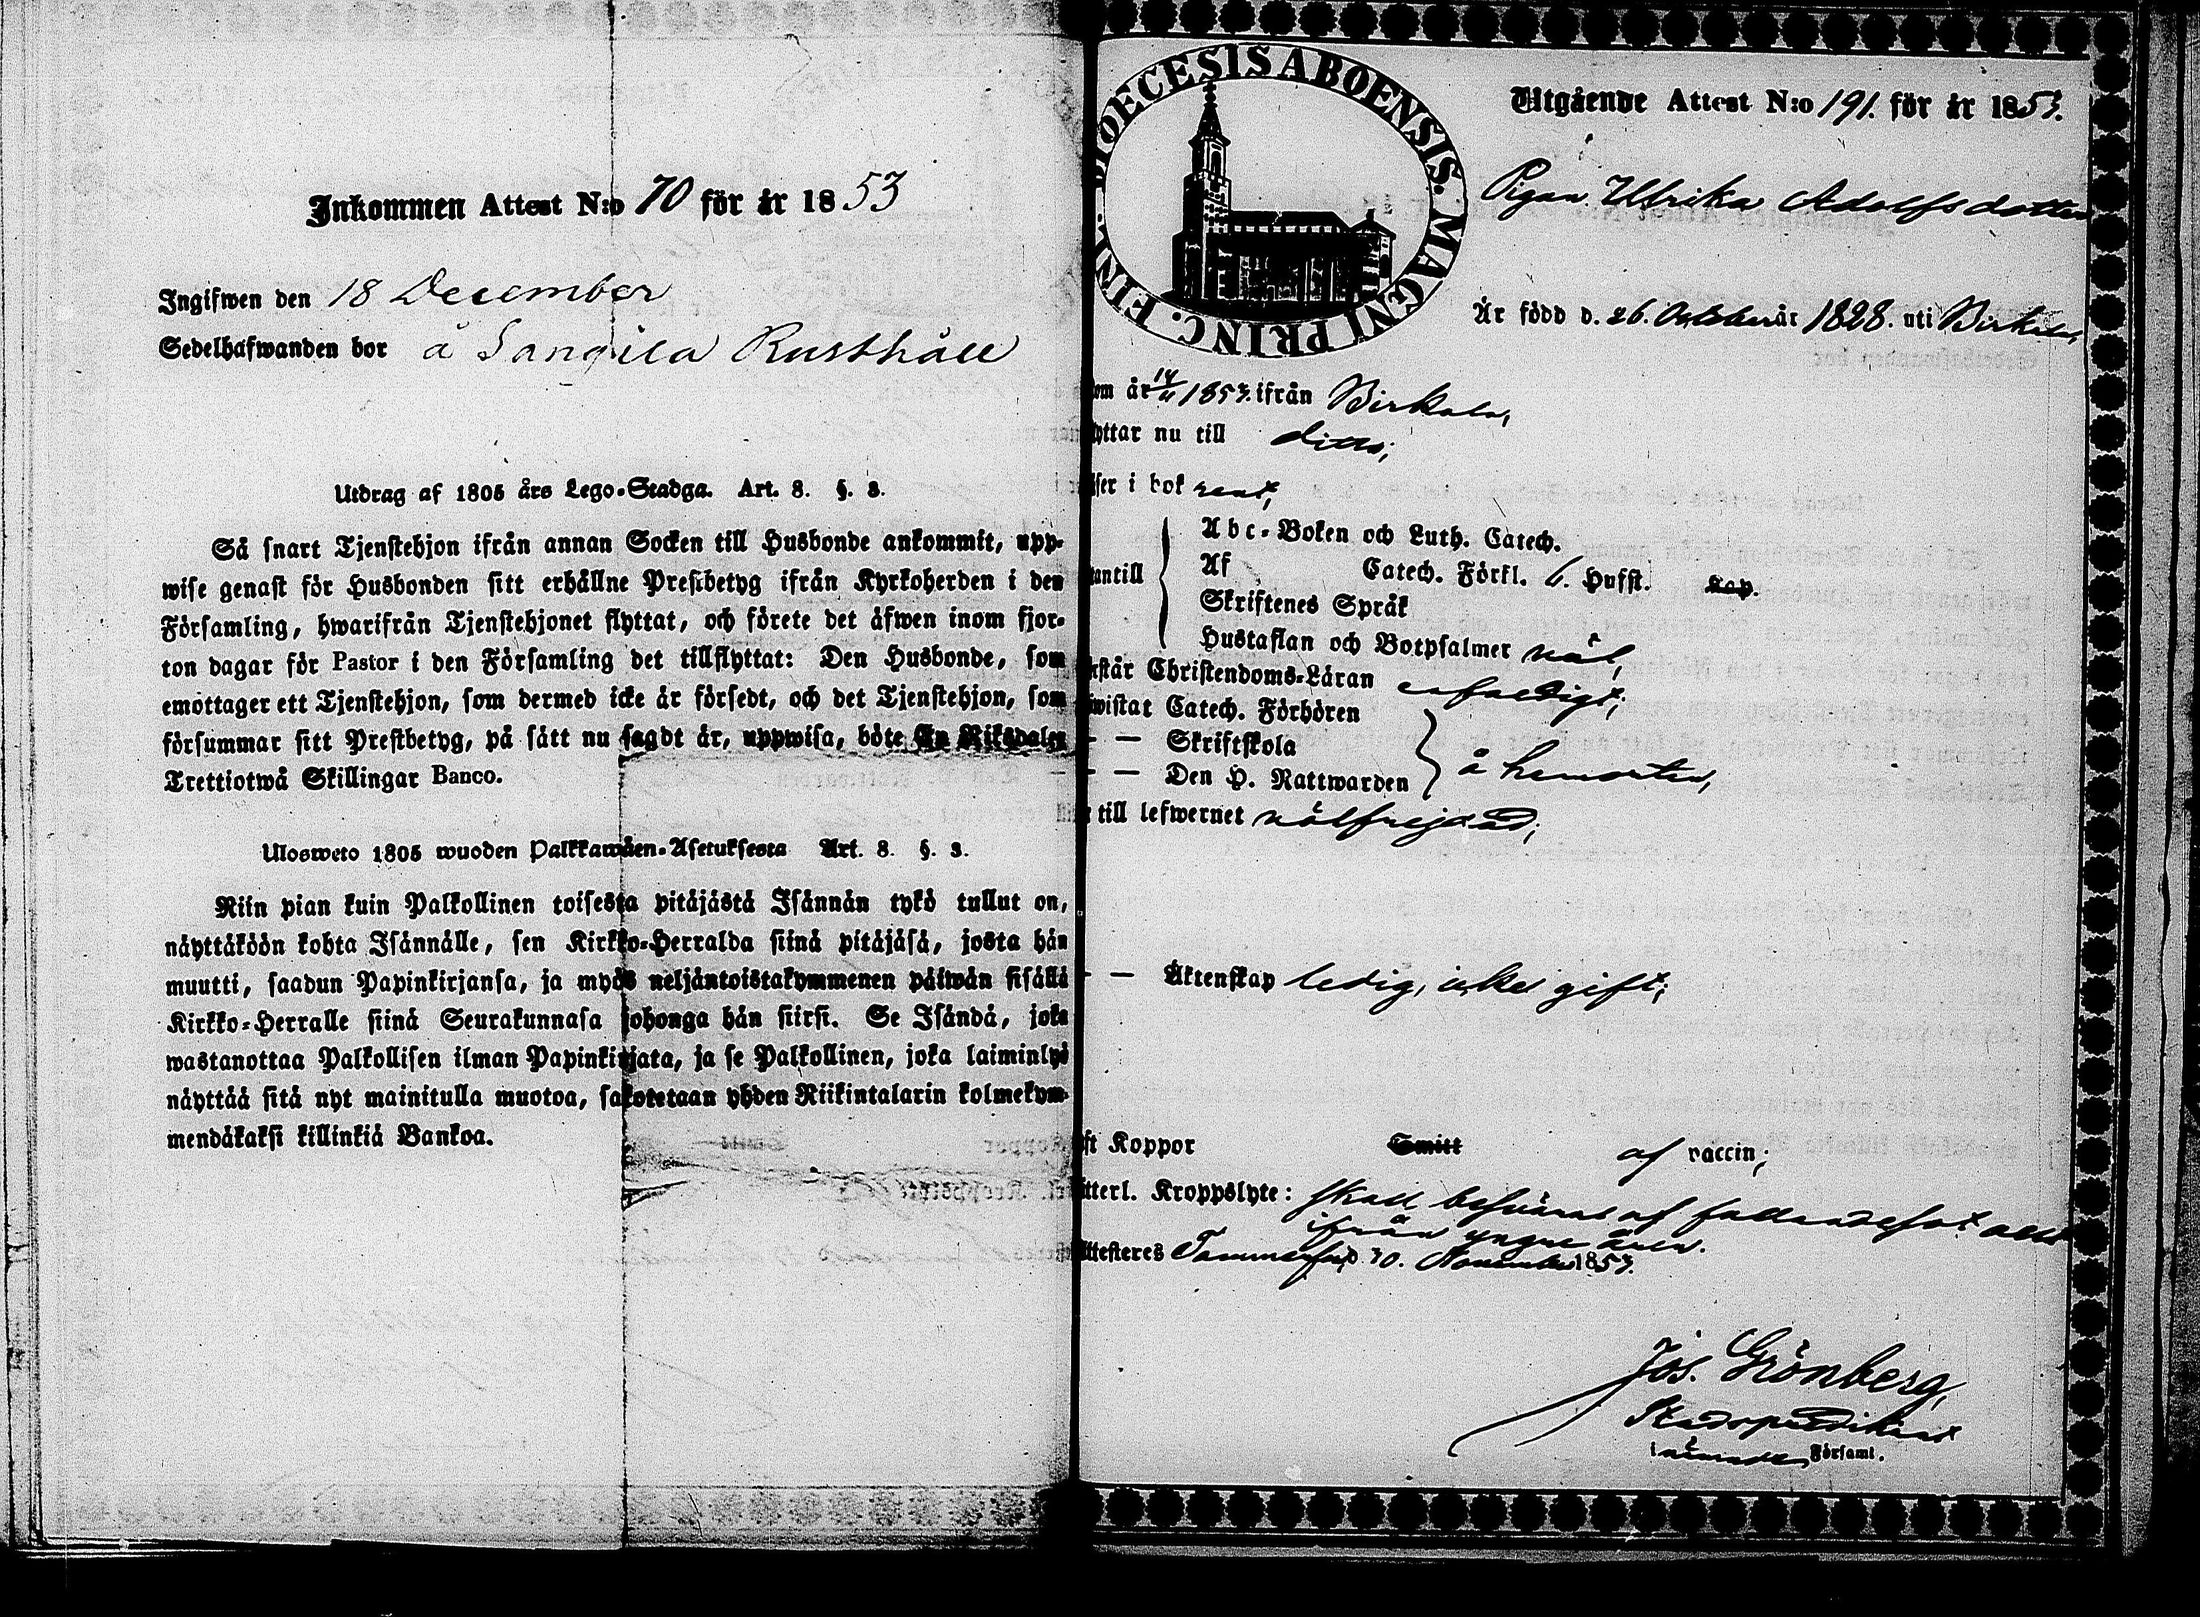 Inkommen Attest N:o 70 för år 1853
Ingifwen den 18 December
Sedelhafwanden bor å Sangila Rusthåll
Utdrag af 1805 års Lego-Stadga. Art. 8. §. 3.
Så snart Tjenstehjon ifrån annan Socken till Husbonde ankommit, upp-
wise genast för Husbonden sitt erhållne Prestbetyg ifrån Kyrkoherden i den
Församling, hwarifrån Tjenstehjonet flyttat, och förete det äfwen inom fjor-
ton dagar för Pastor i den Församling det tillflyttat: Den Husbonde, som
emottager ett Tjenstehjon, som dermed icke är försedt, och det Tjenstehjon, som
försummar sitt Prestbetyg, på sätt nu sagdt är, uppwisa, böte En Riksdaler
Trettiotwå Skillingar Banco.
Ulosweto 1805 wuoden Palkkawäen-Asetuksesta Art. 8. §. 3.
Niin pian kuin Palkollinen toisesta pitäjästä Isännän tykö tullut on,
näyttäköön kohta Isännälle, sen Kirkko-Herralda siinä pitäjäsä, josta hän
muutti, saadun Papinkirjansa, ja myös neljäntoistakymmenen päiwän sisällä
Kirkko-Herralle siinä Seurakunnasa johonga hän siirsi. Se Isändä, joka
wastanottaa Palkollisen ilman Papinkirjata, ja se Palkollinen, joka laiminlyö
näyttää sitä nyt mainitulla muotoa, sakotetaan yhden Riikintalarin kolmekym-
mendäkaksi killinkiä Bankoa.
DIOECESIS ABOENSIS. MAGNI PRINC. FINL.
Utgående Attest N:o 191. för år 1853.
Pigan Ulrika Adolfsdotter
Är född d. 26. October år 1828. uti Birkala,
om år 14/11 1853. ifrån Birkala,
yttar nu till ditto;
äser i bok rent,
Abc-Boken och Luth. Catech.
antill Af Catech. Förkl. 6. Hufst. Kap.
Skriftenes Språk
Hustaflan och Botpsalmer nöl,
rstår Christendoms-Läran enfaldigt;
wistat Catech. Förhören
— — Skriftskola
— — Den H. Nattwarden å hemorten,
till lefwernet wälfrejdad;
— — Äktenskap ledig, icke gift;
ft Koppor Smitt af vaccin;
tterl. Kroppslyte: skall besväras af fallandesot allt
ifrån yngre åren.
ttesteres Tammerfors d. 30. November 1853.
Jos. Grönberg,
Stadspredikant
i nämnde Församl.